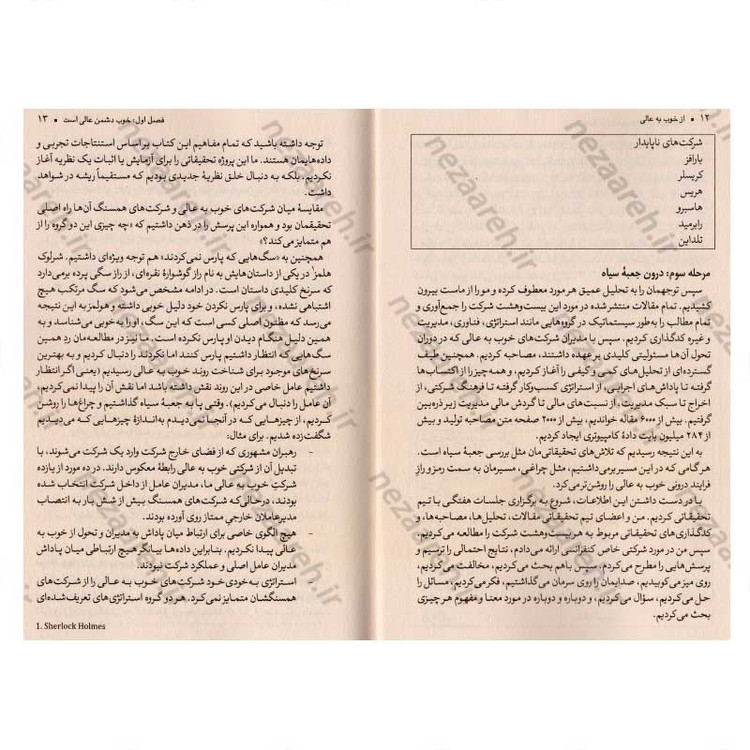 ۱۲ • از خوب به عالی
شرکت‌های ناپایدار
بارافز
کریسلر
هریس
هاسبرو
رابرمید
تلداین
مرحله سوم: درون جعبهٔ سیاه
سپس توجهمان را به تحلیل عمیق هر مورد معطوف کرده و مو را از ماست بیرون
کشیدیم. تمام مقالات منتشر شده در مورد این بیست‌وهشت شرکت را جمع‌آوری و
تمام مطالب را به‌طور سیستماتیک در گروه‌هایی مانند استراتژی، فناوری، مدیریت
و غیره کدگذاری کردیم. سپس با مدیران شرکت‌های خوب به عالی که در دوران
تحول آن‌ها مسئولیتی کلیدی بر عهده داشتند، مصاحبه کردیم. همچنین طیف
گسترده‌ای از تحلیل‌های کمی و کیفی را آغاز کردیم، و همه‌چیز را از اکتساب‌ها
گرفته تا پاداش‌های اجرایی، از استراتژی کسب‌وکار گرفته تا فرهنگ شرکتی، از
اخراج تا سبک مدیریت، از نسبت‌های مالی تا گردش مالی مدیریت زیر ذره‌بین
گرفتیم. بیش از ۶۰۰۰ مقاله خواندیم، بیش از ۲۰۰۰ صفحه متن مصاحبه تولید و بیش
از ۳۸۴ میلیون بایت دادهٔ کامپیوتری ایجاد کردیم.
به این نتیجه رسیدیم که تلاش‌های تحقیقاتی‌مان مثل بررسی جعبهٔ سیاه است.
هر گامی که در این مسیر برمی‌داشتیم، مثل چراغی، مسیرمان به سمت رمز و راز
فرایند درونی خوب به عالی را روشن‌تر می‌کرد.
با در دست داشتن این اطلاعات، شروع به برگزاری جلسات هفتگی با تیم
تحقیقاتی کردیم. من و اعضای تیم تحقیقاتی مقالات، تحلیل‌ها، مصاحبه‌ها، و
کدگذاری‌های تحقیقاتی مربوط به هر بیست‌وهشت شرکت را مطالعه می‌کردیم.
سپس من در مورد شرکتی خاص کنفرانسی ارائه می‌دادم، نتایج احتمالی را ترسیم و
پرسش‌هایی را مطرح می‌کردم. سپس باهم بحث می‌کردیم، مخالفت می‌کردیم،
روی میز می‌کوبیدیم، صدایمان را روی سرمان می‌گذاشتیم، فکر می‌کردیم، مسائل را
حل می‌کردیم، سؤال می‌کردیم، و دوباره و دوباره در مورد معنا و مفهوم هر چیزی
بحث می‌کردیم.
فصل اول: خوب دشمن عالی است • ۱۳
توجه داشته باشید که تمام مفاهیم این کتاب بر اساس استنتاجات تجربی و
داده‌هایمان هستند. ما این پروژه تحقیقاتی را برای آزمایش یا اثبات یک نظریه آغاز
نکردیم، بلکه به دنبال خلق نظریهٔ جدیدی بودیم که مستقیماً ریشه در شواهد
داشت.
مقایسهٔ میان شرکت‌های خوب به عالی و شرکت‌های همسنگ آن‌ها راه اصلی
تحقیقمان بود و همواره این پرسش را در ذهن داشتیم که «چه چیزی این دو گروه را از
هم متمایز می‌کند؟»
همچنین به «سگ‌هایی که پارس نمی‌کردند» هم توجه ویژه‌ای داشتیم. شرلوک
هلمز¹ در یکی از داستان‌هایش به نام راز گوشوارهٔ نقره‌ای، از راز سگی پرده برمی‌دارد
که سرنخ کلیدی داستان است. در ادامه مشخص می‌شود که سگ مرتکب هیچ
اشتباهی نشده، و برای پارس نکردن خود دلیل خوبی داشته و هولمز به این نتیجه
می‌رسد که مظنون اصلی کسی است که این سگ، او را به خوبی می‌شناسد و به
همین دلیل هنگام دیدن او پارس نکرده است. ما نیز در مطالعه‌مان رد همین
سگ‌هایی که انتظار داشتیم پارس کنند اما نکردند را دنبال کردیم و به بهترین
سرنخ‌های موجود برای شناخت روند خوب به عالی رسیدیم (یعنی اگر انتظار
داشتیم عامل خاصی در این روند نقش داشته باشد اما نقش آن را پیدا نمی‌کردیم،
آن عامل را دنبال می‌کردیم). وقتی پا به جعبهٔ سیاه گذاشتیم و چراغ‌ها را روشن
کردیم، از چیزهایی که در آنجا نمی‌دیدیم به‌اندازهٔ چیزهایی که می‌دیدیم
شگفت‌زده شدیم. برای مثال:
- رهبران مشهوری که از فضای خارج شرکت وارد یک شرکت می‌شوند، با
تبدیل آن از شرکتی خوب به عالی رابطهٔ معکوس دارند. در ده مورد از یازده
شرکت خوب به عالی ما، مدیران عامل از داخل شرکت انتخاب شده
بودند، درحالی‌که شرکت‌های همسنگ بیش از شش بار به انتصاب
مدیرعاملان خارجی ممتاز روی آورده بودند.
- هیچ الگوی خاصی برای ارتباط میان پاداش به مدیران و تحول از خوب به
عالی پیدا نکردیم. بنابراین داده‌ها بیانگر هیچ ارتباطی میان پاداش
مدیران عامل اصلی و عملکرد شرکت نبودند.
- استراتژی به‌خودی‌خود شرکت‌های خوب به عالی را از شرکت‌های
همسنگشان متمایز نمی‌کرد. هر دو گروه استراتژی‌های تعریف‌شده‌ای
1. Sherlock Holmes
nezaareh.ir